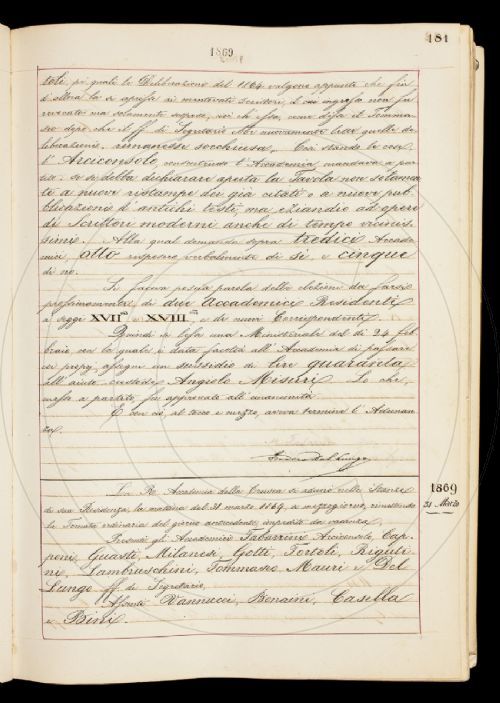 1869
181
toli, pe' quali la Deliberazione del 1864 valgono appunto che fin
d'allora la si aprisse ai mentovati Scrittori, e
revocata ma solamente sospesa, così ch'essa, come disse il Tommaseo
dopo che il ff. di Segretario ebbe nuovamente letto quella deliberazione,
rimanesse socchiusa. Così stando le cose
l'Arciconsolo, consentendo l'Accademia, mandava a partito:
se si debba dichiarare aperta la Tavola non solamente
a nuove ristampe di già citati o a nuove pubblicazioni
d'antichi testi, ma eziandio ad opere
di Scrittori moderni anche di tempo vicinissimi.
Alla qual domanda sopra tredici Accademici,
otto risposero verbalmente di sì, e cinque
di no.
Si faceva poscia parola delle elezioni da farsi
prossimamente, di due Accademici Residenti
a' seggi XVII e XVIII e di nuovi Corrispondenti.
Quindi è letta una Ministeriale del dì 24 febbraio,
con la quale è data facoltà all'Accademia di passare
un sussidio di lire quaranta
all'aiuto custode Angiolo Misuri. Lo che,
messo a partito, fu approvato all'unanimità.
E con ciò, al tocco e mezzo, aveva termine l'Adunanza.
Isidoro Del Lungo
1869
31 Marzo
La R. Accademia della Crusca si adunò nelle Stanze
di sua Residenza la mattina del 31 marzo 1869, a mezzogiorno, rimettendo
la Tornata ordinaria del giorno antecedente, impedita da vacanza.
Presenti gli Accademici Tabarrini Arciconsolo, Capponi,
Guasti, Milanesi, Gotti, Tortoli, Rigutini,
Lambruschini, Tommaseo, Mauri e Del
Lungo ff. di Segretario.
Assenti Vannucci, Bonaini, Casella
e Bini.